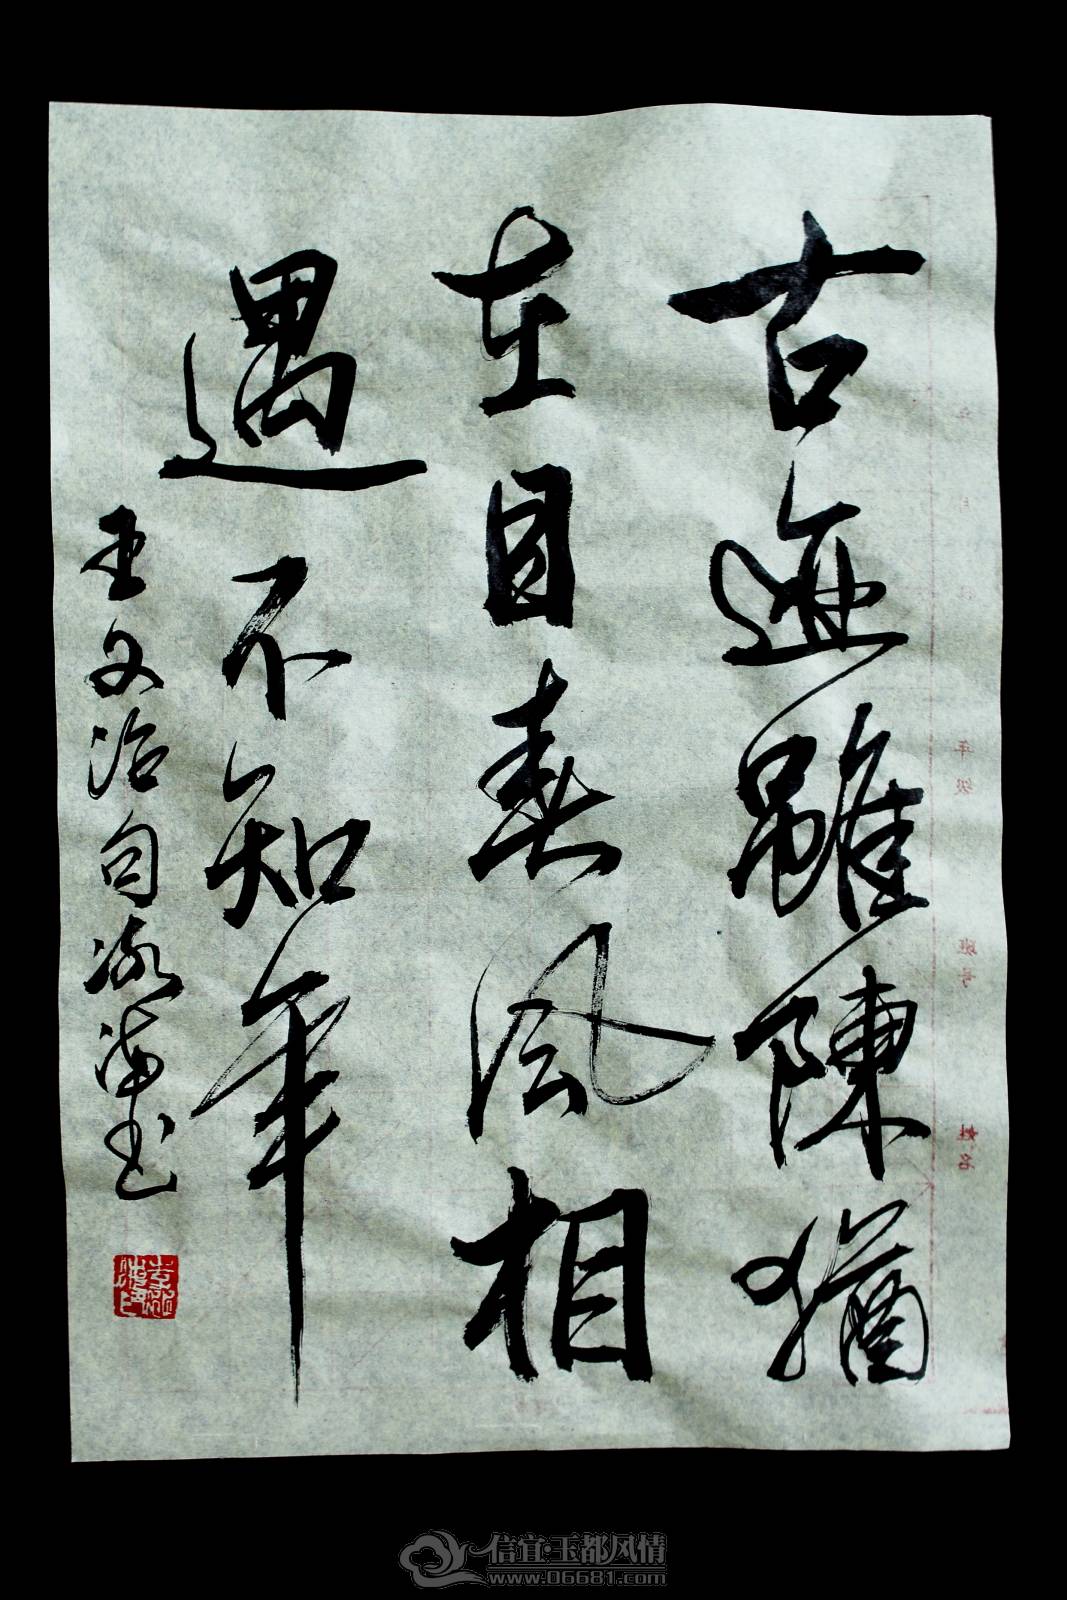 古迹雖陳猶
在目春風相
遇不知年
王文治句
信宜·玉都风情
www.06681.com